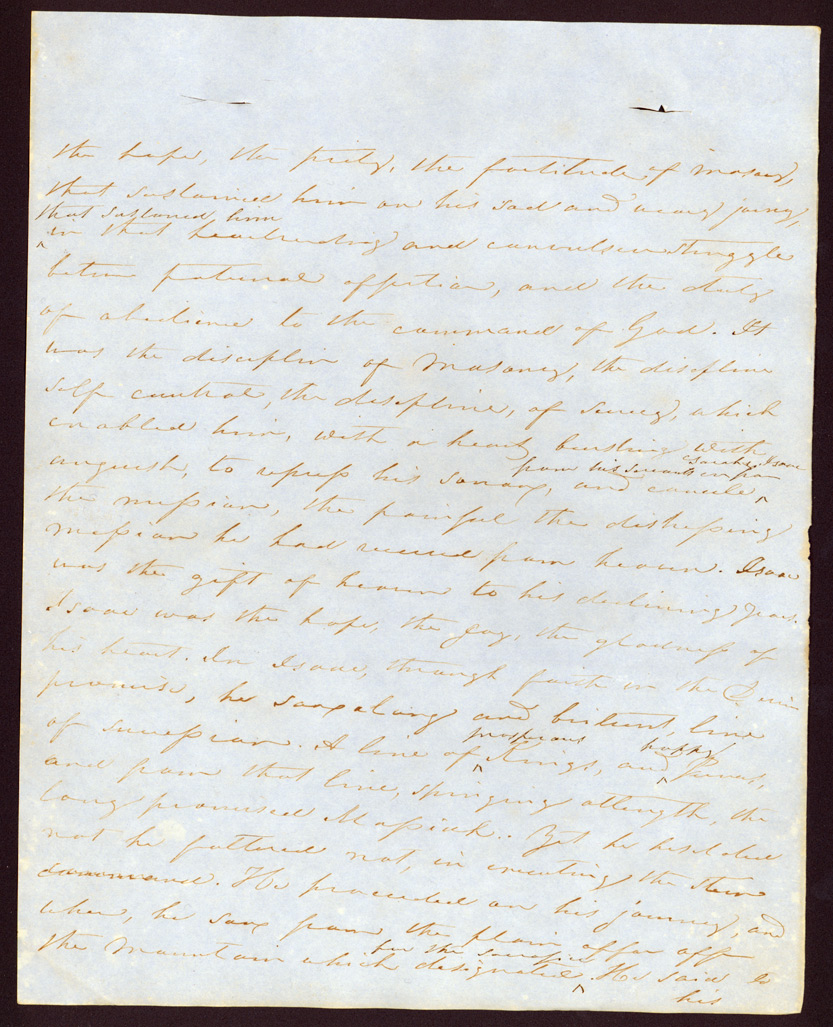 the hope, the piety, the fortitude of Masonry,
that sustained him on his sad and weary journey,
that sustained him
in that heartrending and convulsive struggle
between paternal affection, and the duty
of obedience to the command of God. It
was the discipline of Masonry, the discipline
self control, the discipline, of secrecy, which
enabled him, with a heart bursting with
Sarah, Isaac
from his servants
anguish, to repress his sorrow, and conceal
the mission, the painful the distressing
mission he had received from heaven. Isaac
was the gift of heaven to his declining years.
Isaac was the hope, the joy, the gladness of
his heart. In Isaac, through faith in the Divine
promise, he saw a long and brilliant line
of succession. A line of
prosperous happy
Kings, and
and from that line, springing at length, the
long promised Messiah. Yet he hesitated
not he faltered not, in executing the stern
command. He proceeded on his journey, and
when, he saw from the plain affar off
for the sacrifice
the Mountain which designated, He said to
his